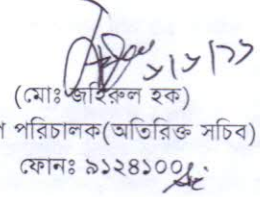 ১/১/১১
(মোঃ জহিরুল হক)
পরিচালক(অতিরিক্ত সচিব)
ফোনঃ ৯১২৪১০০